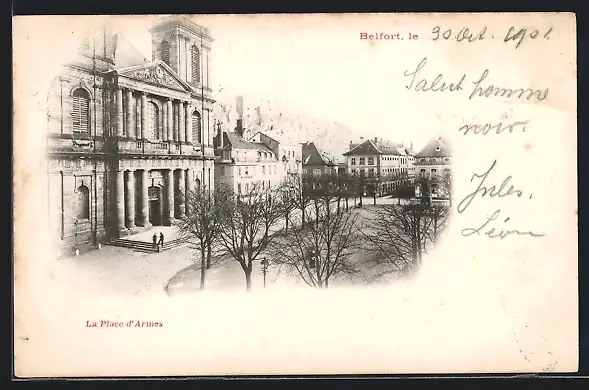 Belfort, le 30 Oct. 1901
Salut homme
noir.
Jules,
Léon
La Place d'Armes